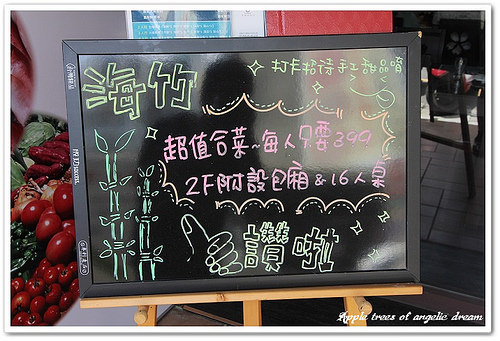 海竹
打卡招待手工甜品唷
超值合菜~每人只要399
2F附設包廂&16人桌
讚啦
Apple trees of angelic dream